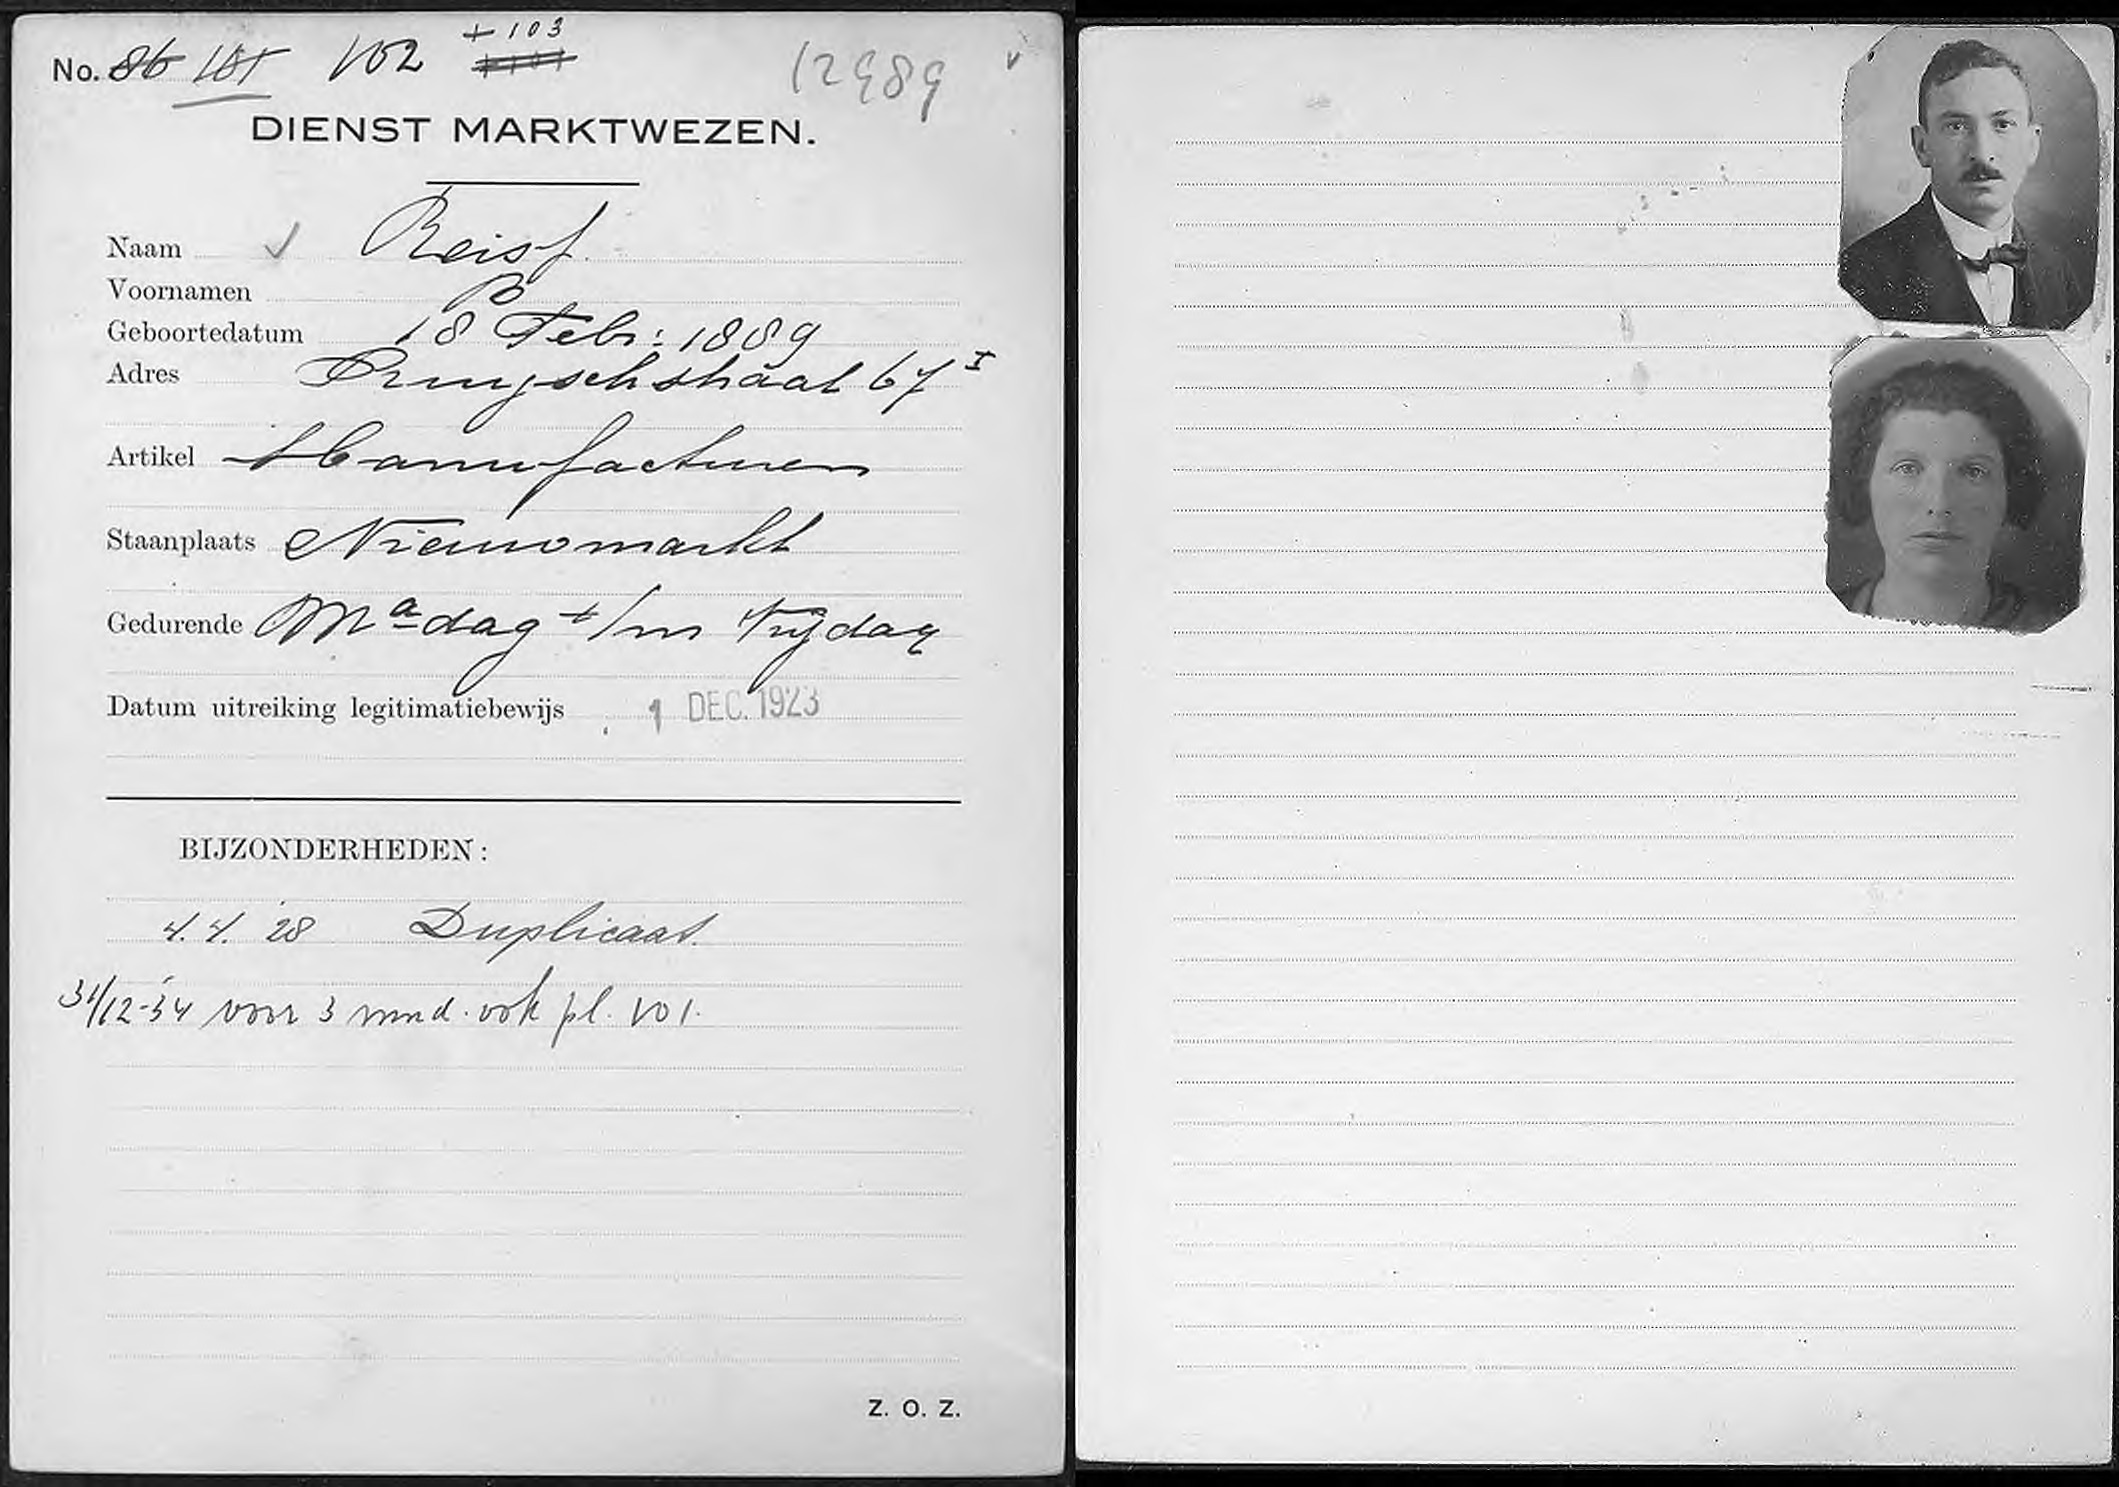 No. 86 101 102 + 103
12989
DIENST MARKTWEZEN.
Naam Reisf
Voornamen B
Geboortedatum 18 Febr: 1889
Adres Ruyschstraat 67 I
Artikel Manufacturen
Staanplaats Nieuwmarkt
Gedurende Madag t/m Vrijdag
Datum uitreiking legitimatiebewijs 1 DEC. 1923
BIJZONDERHEDEN:
4.4.28 Duplicaat.
31/12-34 voor 3 mnd. ook pl. 101.
Z. O. Z.